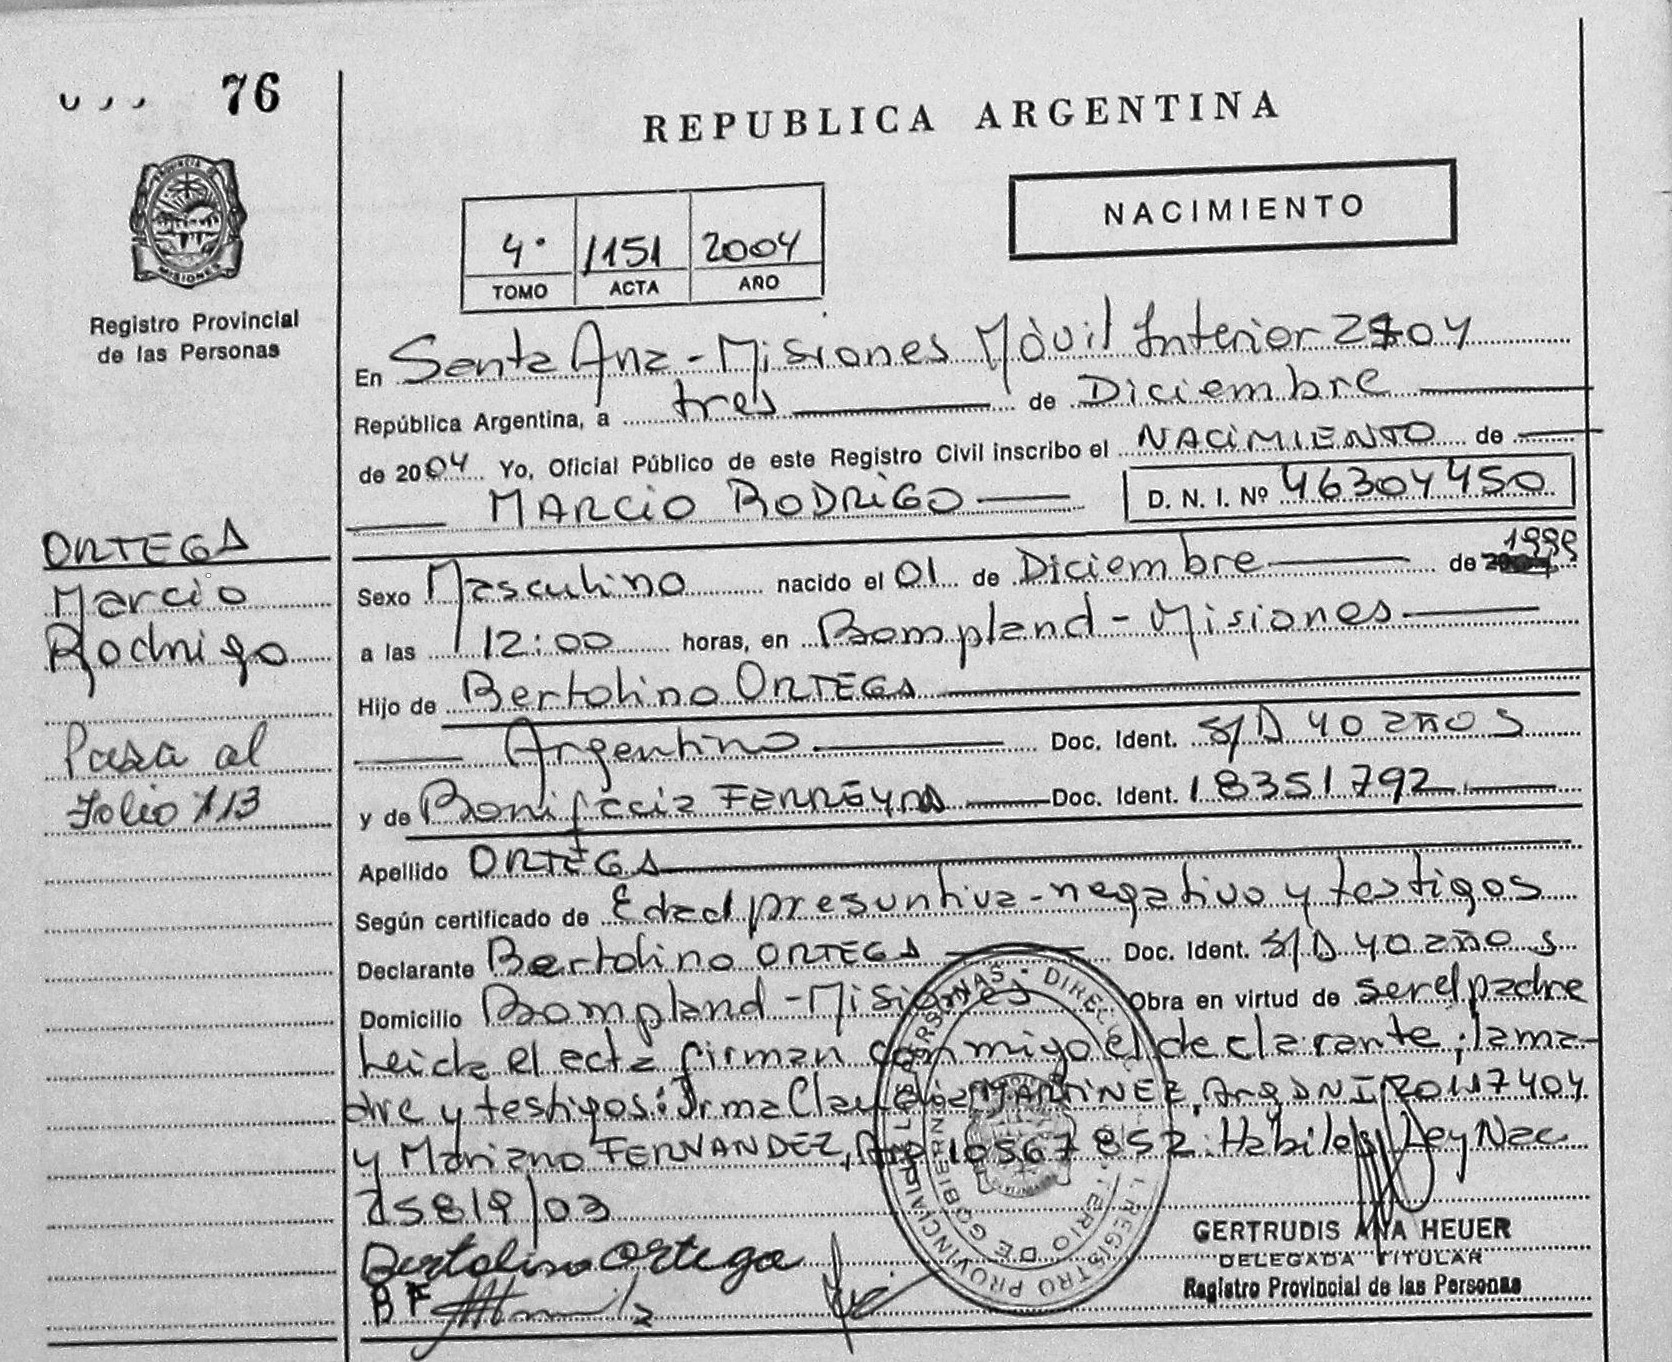 76
REPUBLICA ARGENTINA
PROVINCIA DE
MISIONES
Registro Provincial
de las Personas
NACIMIENTO
4° 1151 2004
TOMO ACTA AÑO
En Santa Ana - Misiones Móvil Interior 2404
República Argentina, a tres de Diciembre
de 2004 Yo, Oficial Público de este Registro Civil inscribo el NACIMIENTO de
MARCIO RODRIGO D. N. I. Nº 46304450
ORTEGA
Marcio
Rodrigo
Pasa al
Folio 113
Sexo Masculino nacido el 01 de Diciembre de 1999
a las 12:00 horas, en Bompland - Misiones
Hijo de Bertolino ORTEGA
Argentino Doc. Ident. S/D 40 años
y de Bonifacia FERREYRA Doc. Ident. 18351792
Apellido ORTEGA
Según certificado de Edad presuntiva - negativo y testigos
Declarante Bertolino ORTEGA Doc. Ident. S/D 40 años
Domicilio Bompland - Misiones Obra en virtud de ser el padre
Leida el acta firman conmigo el declarante; la ma-
dre y testigos: Irma Claudia MARTINEZ, Arg DNI
y Mariano FERNANDEZ, Arg 10567852. Habiles Ley Nac
25819/03
Bertolino Ortega
BF
GERTRUDIS ANA HEUER
DELEGADA TITULAR
Registro Provincial de las Personas